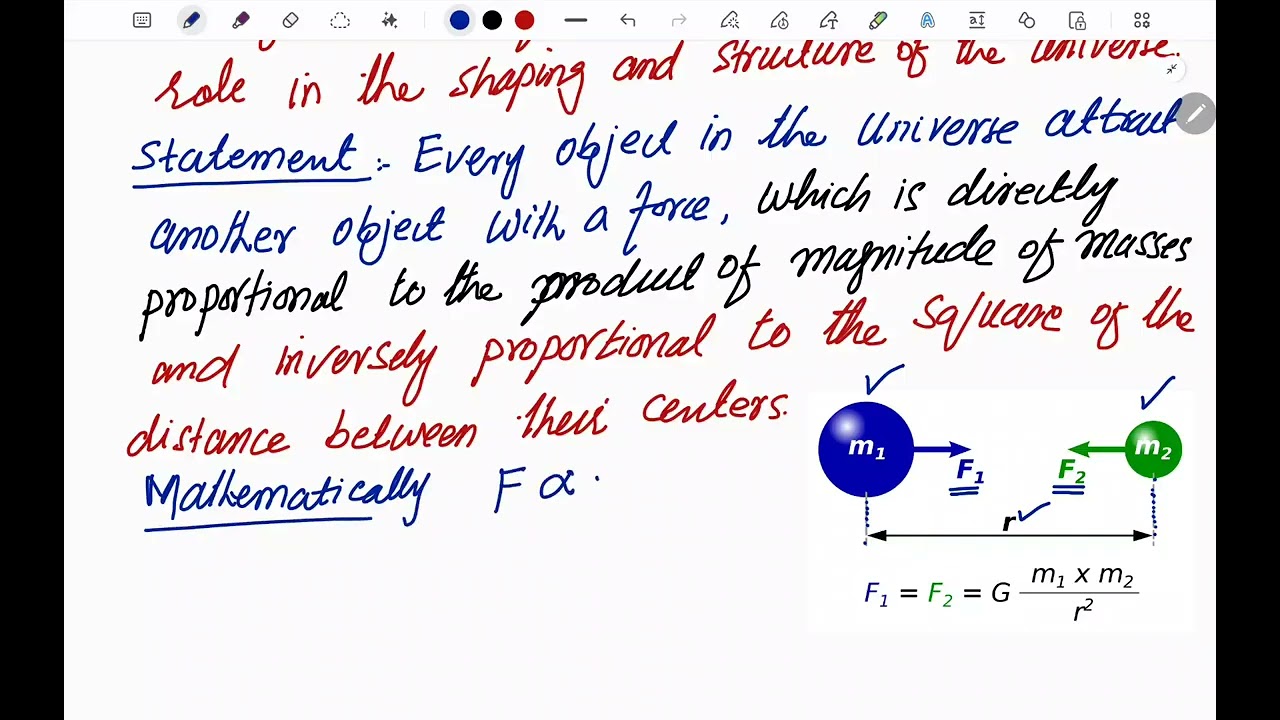 role in the shaping and structure of the universe.
Statement :- Every object in the Universe attract
another object with a force, which is directly
proportional to the product of magnitude of masses
and inversely proportional to the square of the
distance between their centers.
Mathematically F ∝
m₁ F₁ F₂ m₂
r
F₁ = F₂ = G (m₁ x m₂)/r²